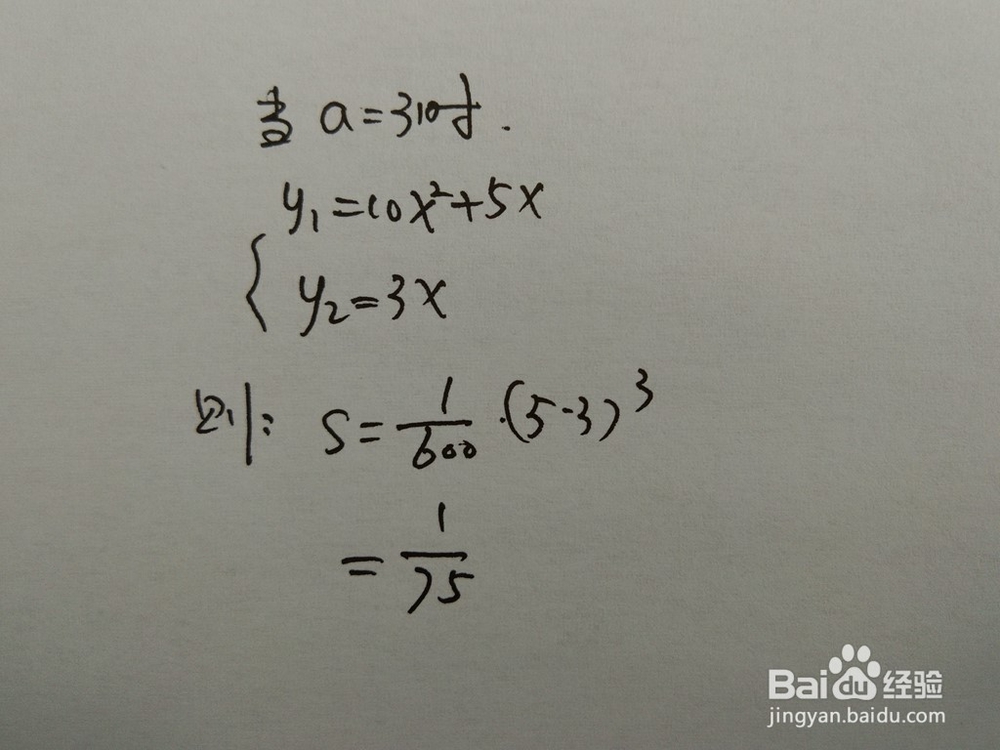 当 a=3时.
y₁=10x²+5x
y₂=3x
则: S=1/600·(5-3)³
=1/75
Baidu经验
jingyan.baidu.com